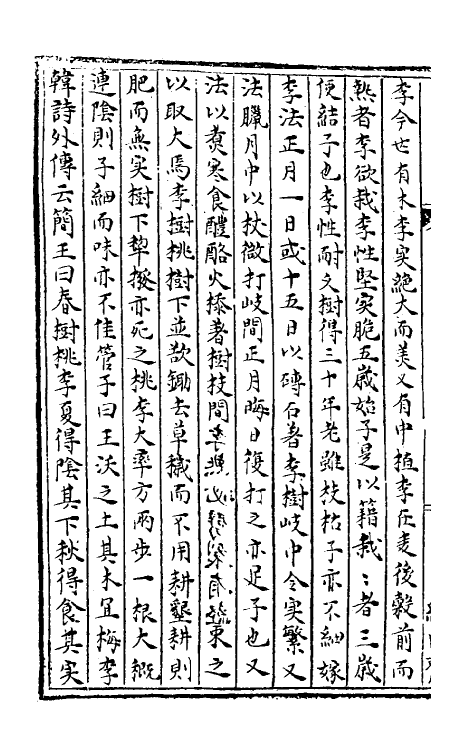 李今世有木李实絶大而美又有中植李在麦後穀前而
熟者李欲栽李性堅实脆五歳始子是以籍栽〻者三歳
便結子也李性耐久樹得三十年老雖枝枯子亦不細嫁
李法正月一日或十五日以磚石着李樹岐中令实繁又
法臘月中以杖微打岐間正月晦日復打之亦足子也又
法以煮寒食醴酪火㮇着樹枝間亦良樹多者故多束之
以取火焉李樹桃樹下並欲鋤去草穢而不用耕墾耕則
肥而無实樹下犂撥亦死之桃李大率方両步一根大概
連陰則子細而味亦不佳管子曰王沃之土其木宜梅李
韓詩外傳云簡王曰春樹桃李夏得陰其下秋得食其实